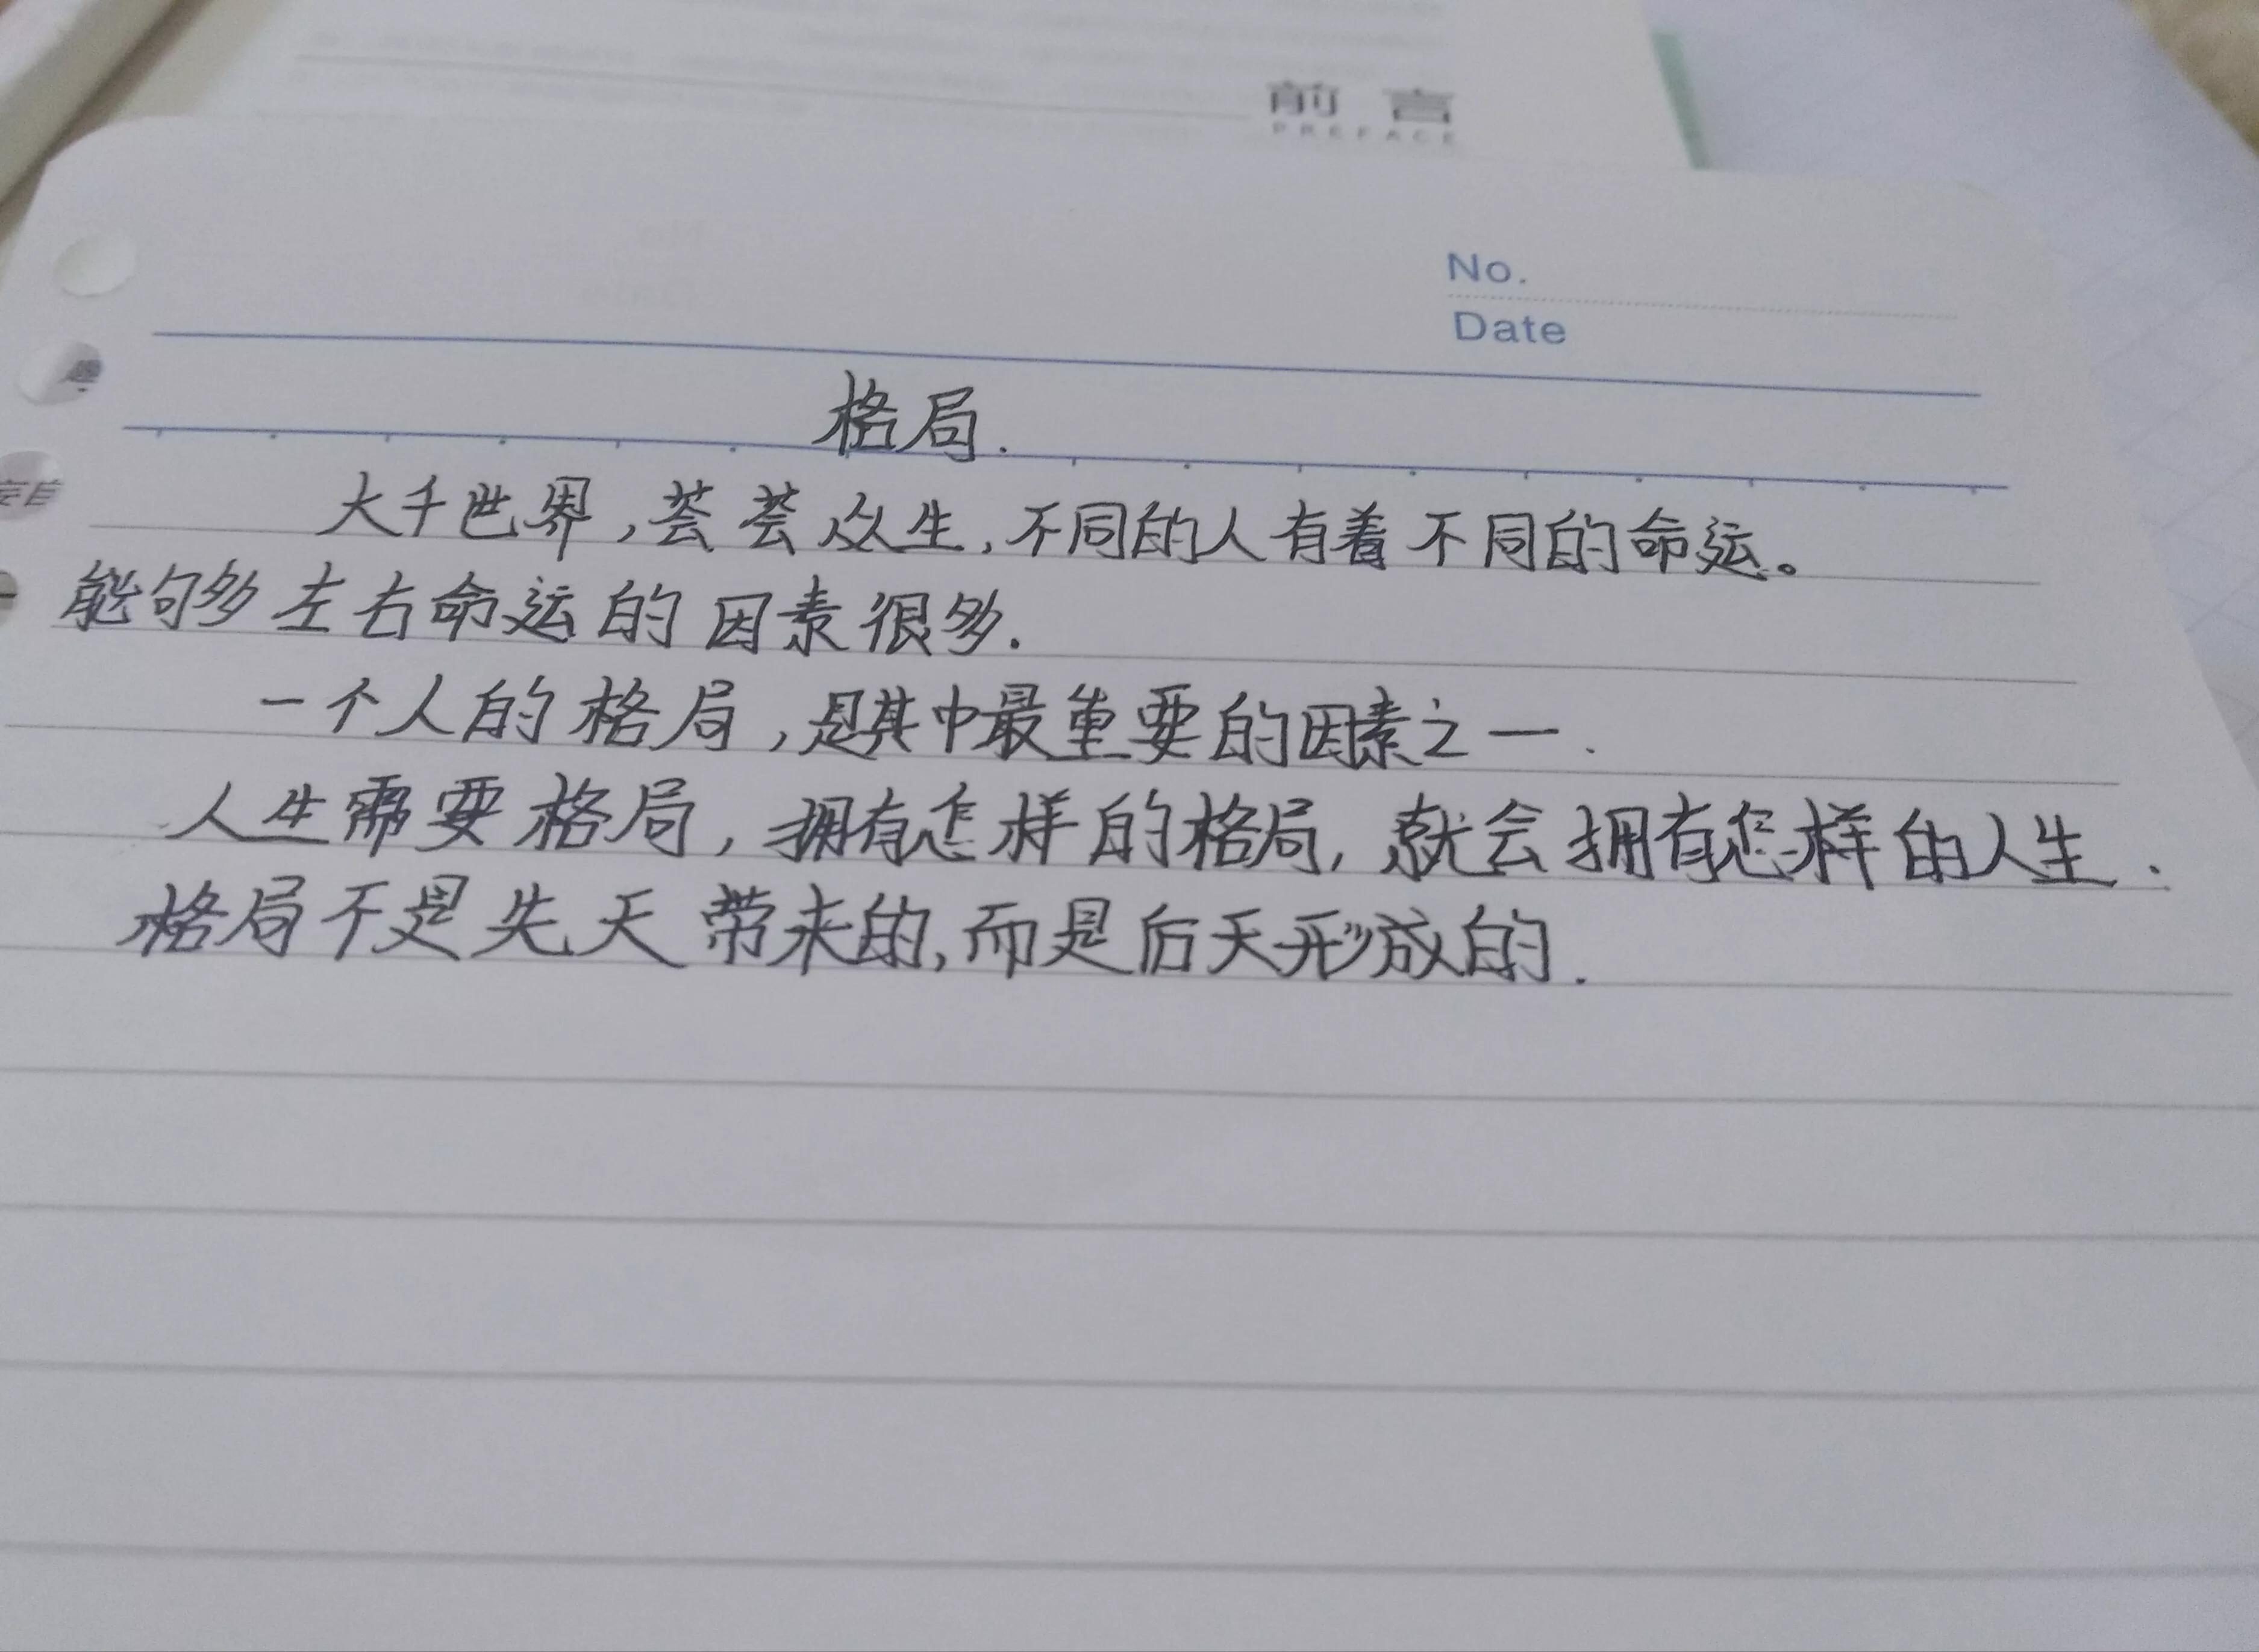 前 言
PREFACE
No.
Date
格局.
大千世界,芸芸众生,不同的人有着不同的命运。
能够左右命运的因素很多.
一个人的格局,是其中最重要的因素之一.
人生需要格局,拥有怎样的格局,就会拥有怎样的人生.
格局不是先天带来的,而是后天形成的.